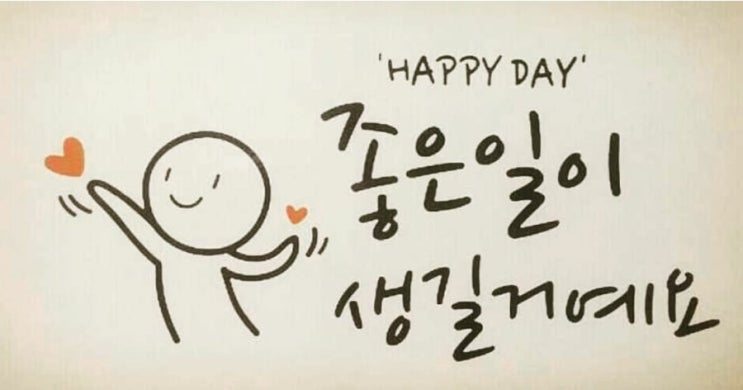 'HAPPY DAY'
좋은일이
생길거예요